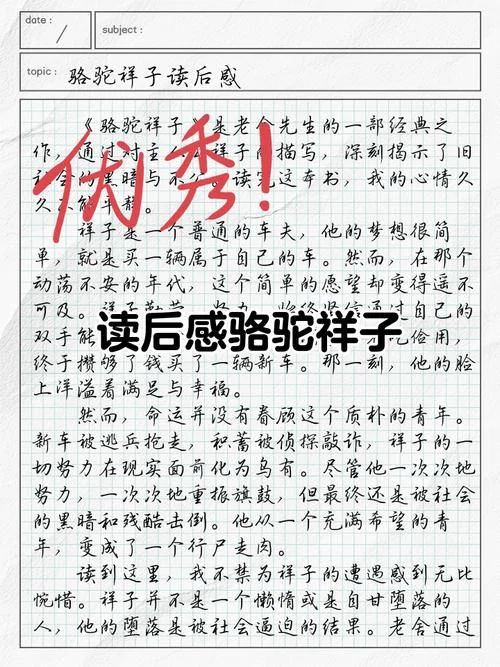 date :
subject :
topic : 骆驼祥子读后感
《骆驼祥子》是老舍先生的一部经典之
作，通过对主人公祥子的描写，深刻揭示了旧
社会的黑暗与不公。读完这本书，我的心情久
久不能平静。
优秀！
祥子是一个普通的车夫，他的梦想很简
单，就是买一辆属于自己的车。然而，在那个
动荡不安的年代，这个简单的愿望却变得遥不
可及。祥子勤劳、努力，始终坚信通过自己的
读后感骆驼祥子
双手能 吃俭用，
终于攒够了钱买了一辆新车。那一刻，他的脸
上洋溢着满足与幸福。
然而，命运并没有眷顾这个质朴的青年。
新车被逃兵抢走，积蓄被侦探敲诈，祥子的一
切努力在现实面前化为乌有。尽管他一次次地
努力，一次次地重振旗鼓，但最终还是被社会
的黑暗和残酷击倒。他从一个充满希望的青
年，变成了一个行尸走肉。
读到这里，我不禁为祥子的遭遇感到无比
惋惜。祥子并不是一个懒惰或是自甘堕落的
人，他的堕落是被社会逼迫的结果。老舍通过